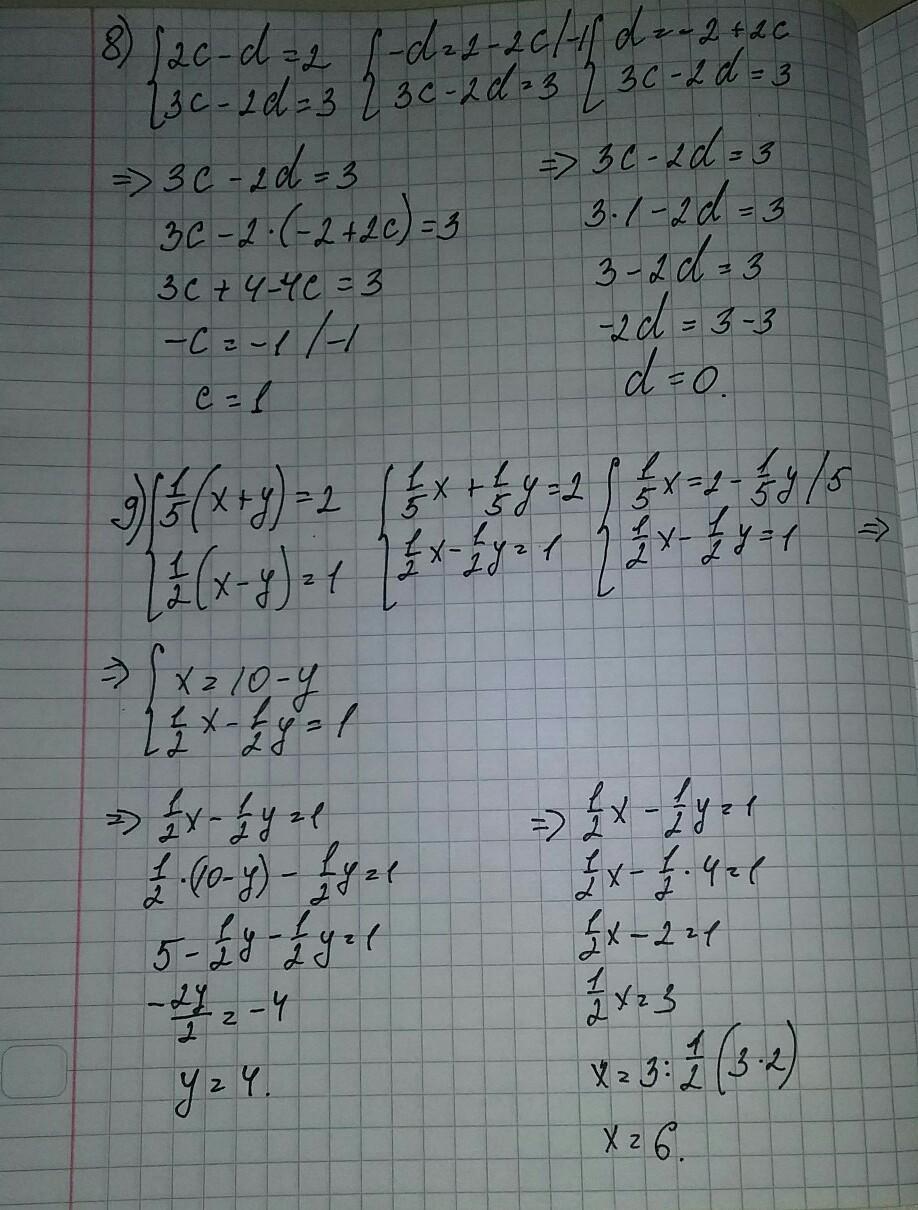 8) { 2c - d = 2 { -d = 2 - 2c / -1 { d = -2 + 2c
{ 3c - 2d = 3 { 3c - 2d = 3 { 3c - 2d = 3
=> 3c - 2d = 3
3c - 2·(-2 + 2c) = 3
3c + 4 - 4c = 3
-c = -1 / -1
c = 1
=> 3c - 2d = 3
3·1 - 2d = 3
3 - 2d = 3
-2d = 3 - 3
d = 0.
9) { 1/5 (x + y) = 2 { 1/5 x + 1/5 y = 2 { 1/5 x = 2 - 1/5 y / 5
{ 1/2 (x - y) = 1 { 1/2 x - 1/2 y = 1 { 1/2 x - 1/2 y = 1 =>
=> { x = 10 - y
{ 1/2 x - 1/2 y = 1
=> 1/2 x - 1/2 y = 1
1/2 ·(10 - y) - 1/2 y = 1
5 - 1/2 y - 1/2 y = 1
-2y/2 = -4
y = 4.
=> 1/2 x - 1/2 y = 1
1/2 x - 1/2 · 4 = 1
1/2 x - 2 = 1
1/2 x = 3
x = 3 : 1/2 (3·2)
x = 6.